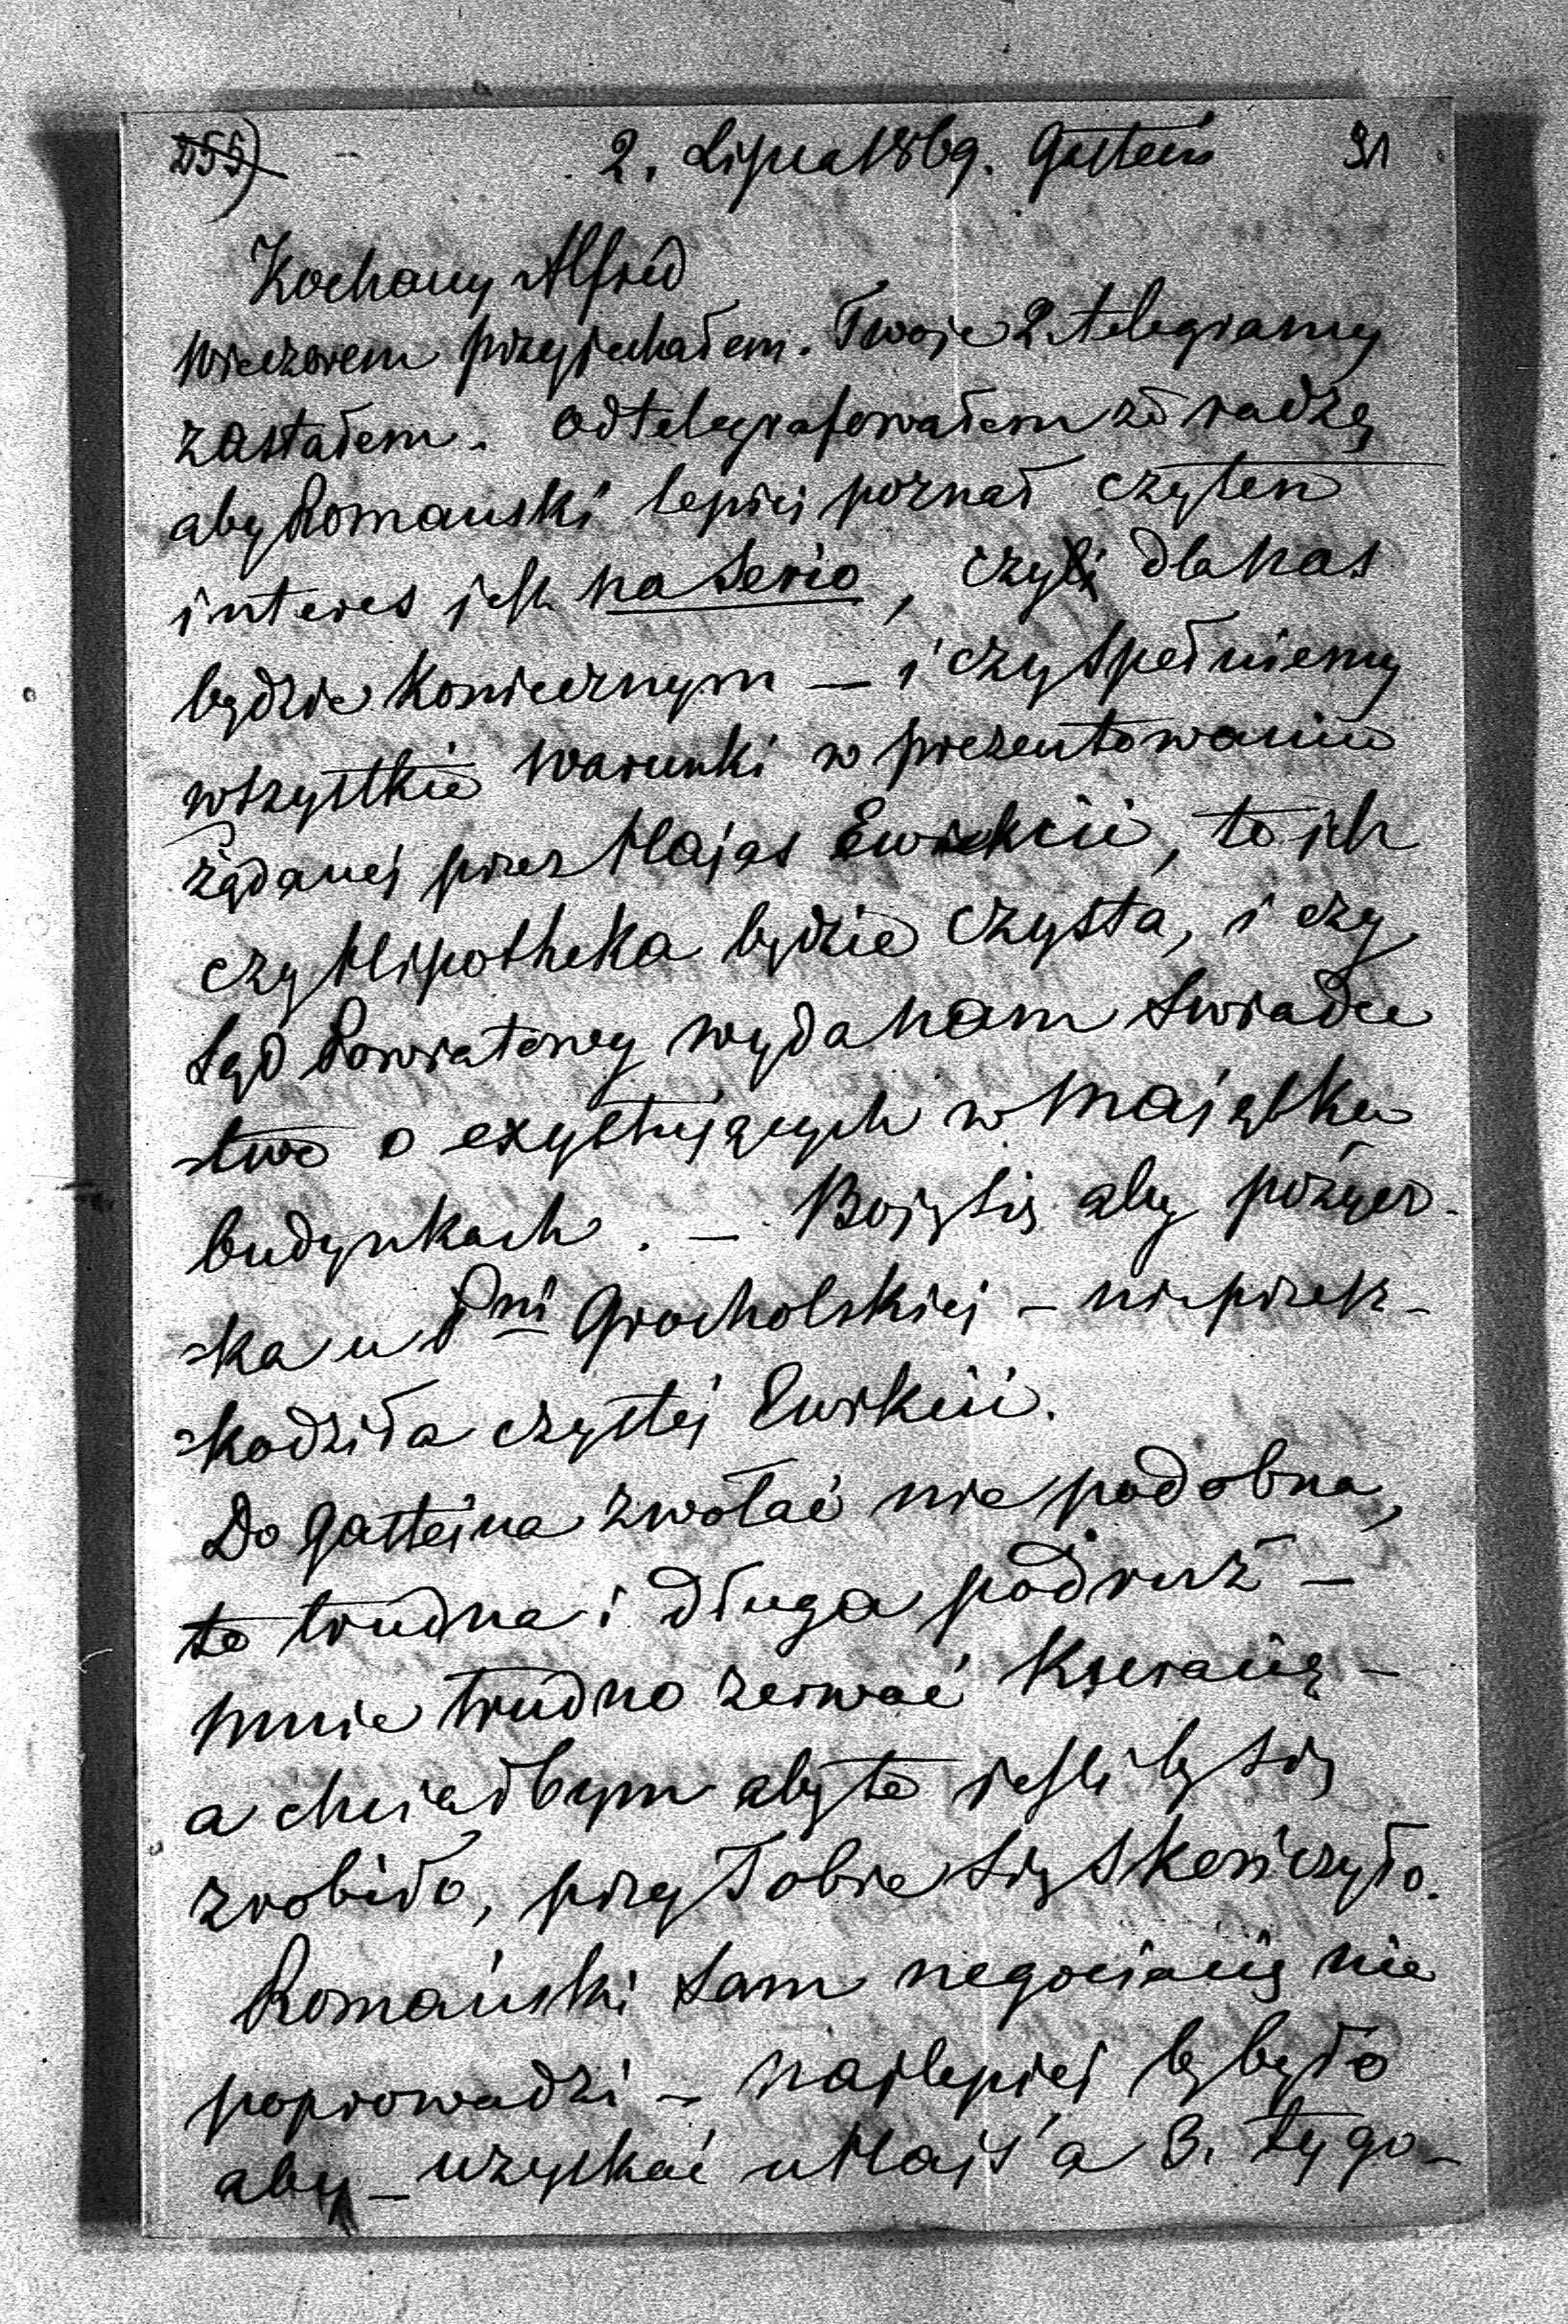 255) 2. Lipca 1869. Gastein 31
Kochany Alfred
Wieczorem przyjechałem. Twoje 2 telegramy
zastałem. Odtelegrafowałem że radzę
aby Romański lepiej poznał czy ten
interes jest na serio, czyli dla nas
będzie koniecznym — i czy spełniemy
wszystkie warunki w prezentowaniu
żądanej przez Hajas Ewikcii, to jest
czy Hipotheka będzie czysta, i czy
Sąd Powiatowy wyda nam Swiadec
=two o exystujących w majątku
budynkach. — Boję się aby pożycz-
=ka u Pni Grocholskiej — nieprzesz-
=kodziła czystej Ewikcii.
Do Gasteina zwołać niepodobna,
to trudna i długa podruż —
mnie trudno zerwać Kuracię —
a chciałbym aby to jeśli by się
zrobiło, przy Tobie się skończyło.
Romański sam negociacię nie
poprowadzi — najlepiej by było
aby — uzyskać u Hajs'a 3. tygo-